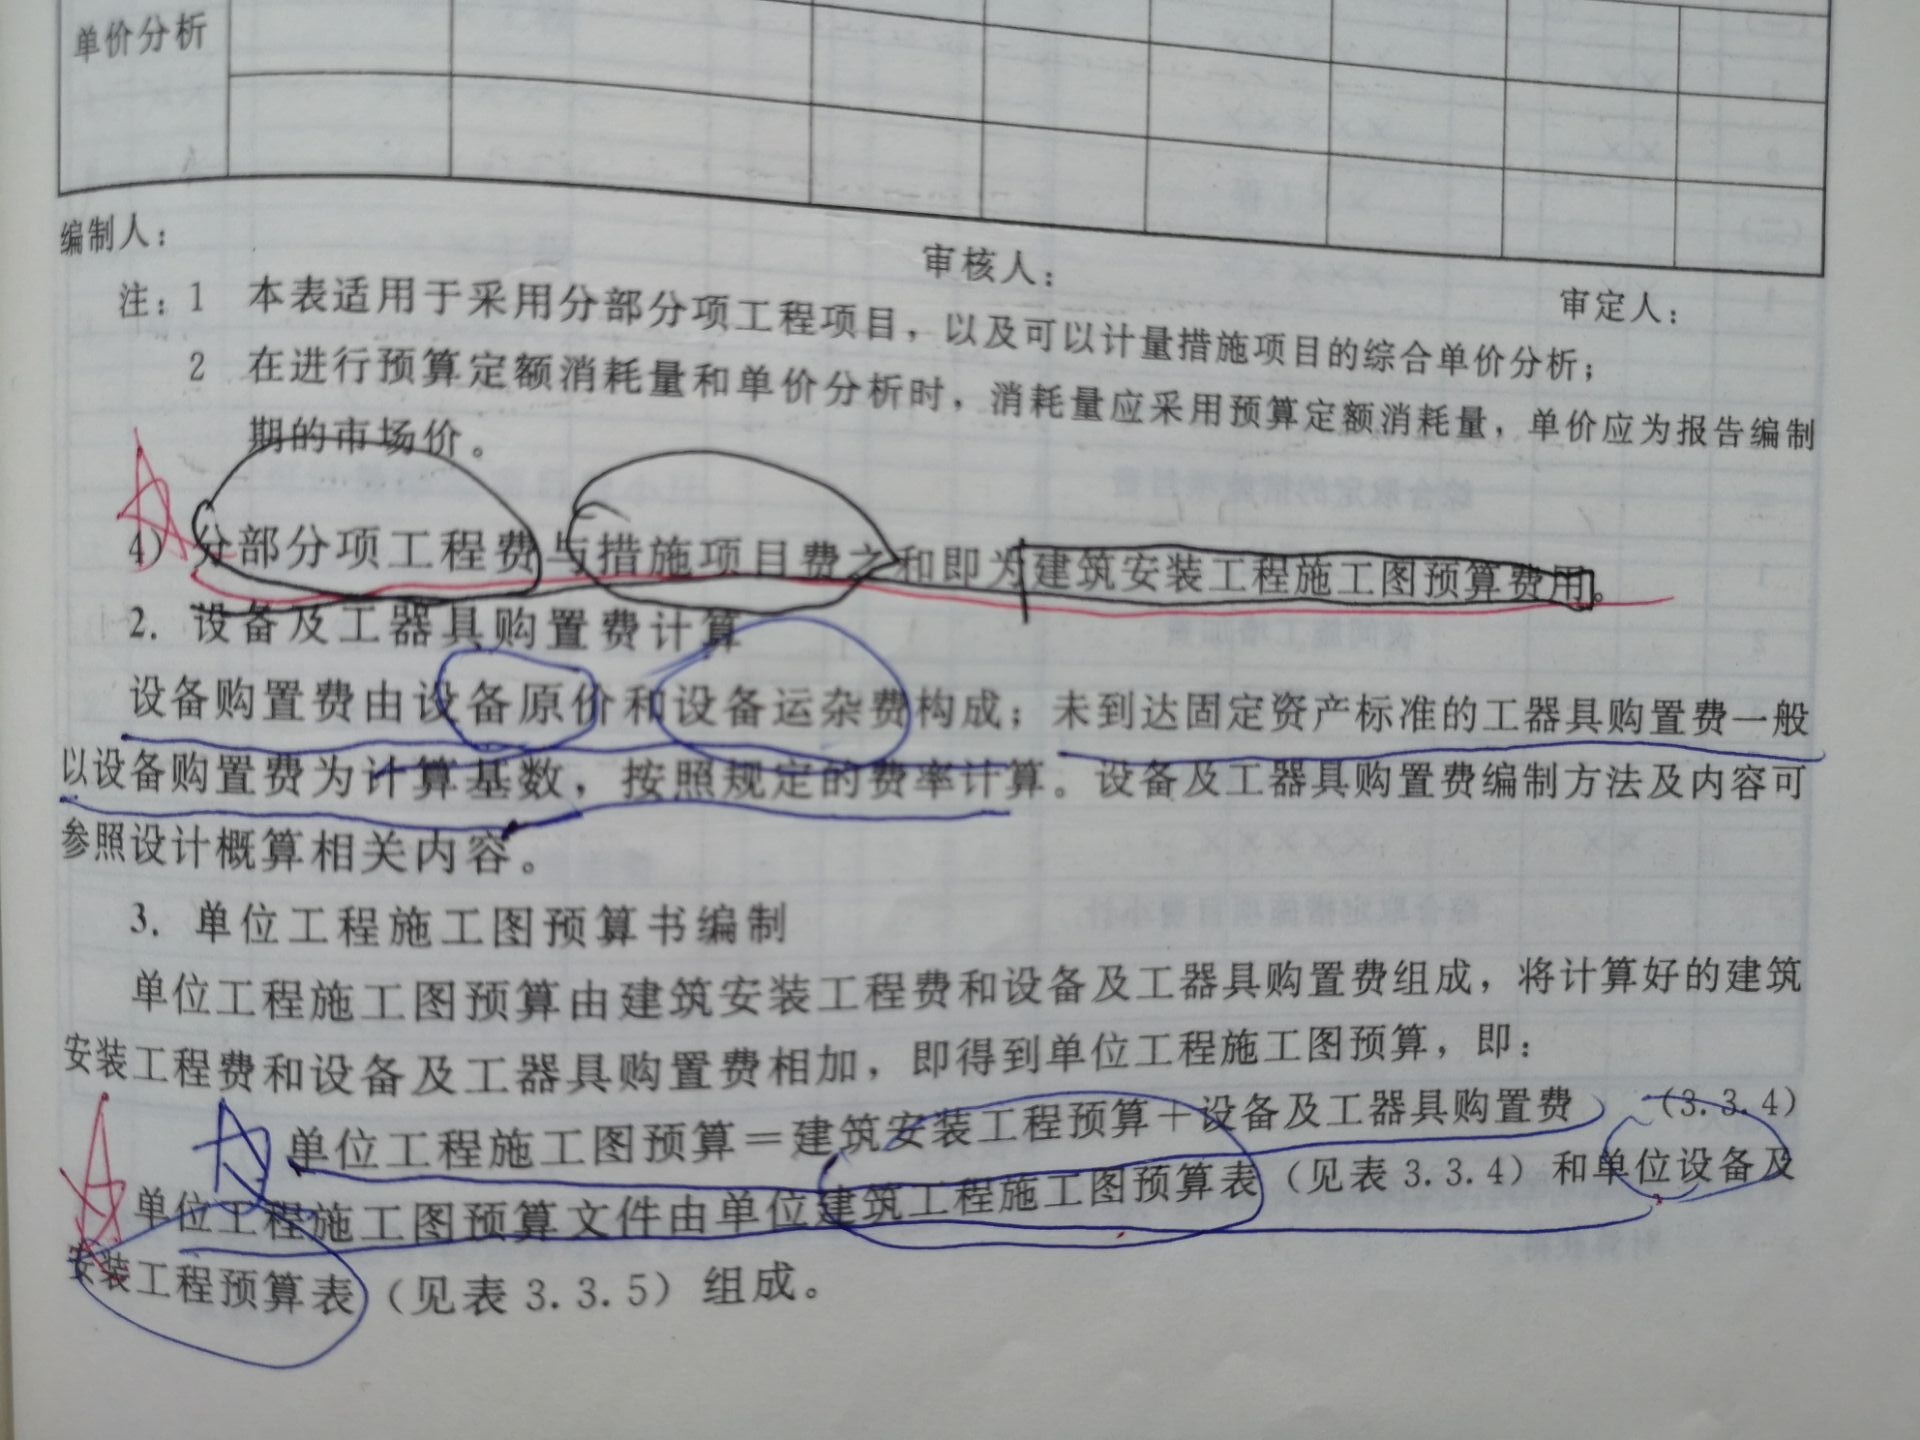 单价分析
编制人：
审核人：
审定人：
注：1 本表适用于采用分部分项工程项目，以及可以计量措施项目的综合单价分析；
2 在进行预算定额消耗量和单价分析时，消耗量应采用预算定额消耗量，单价应为报告编制
期的市场价。
4）分部分项工程费与措施项目费之和即为建筑安装工程施工图预算费用。
2. 设备及工器具购置费计算
设备购置费由设备原价和设备运杂费构成；未到达固定资产标准的工器具购置费一般
以设备购置费为计算基数，按照规定的费率计算。设备及工器具购置费编制方法及内容可
参照设计概算相关内容。
3. 单位工程施工图预算书编制
单位工程施工图预算由建筑安装工程费和设备及工器具购置费组成，将计算好的建筑
安装工程费和设备及工器具购置费相加，即得到单位工程施工图预算，即：
单位工程施工图预算＝建筑安装工程预算＋设备及工器具购置费 （3.3.4）
单位工程施工图预算文件由单位建筑工程施工图预算表（见表 3.3.4）和单位设备及
安装工程预算表（见表 3.3.5）组成。